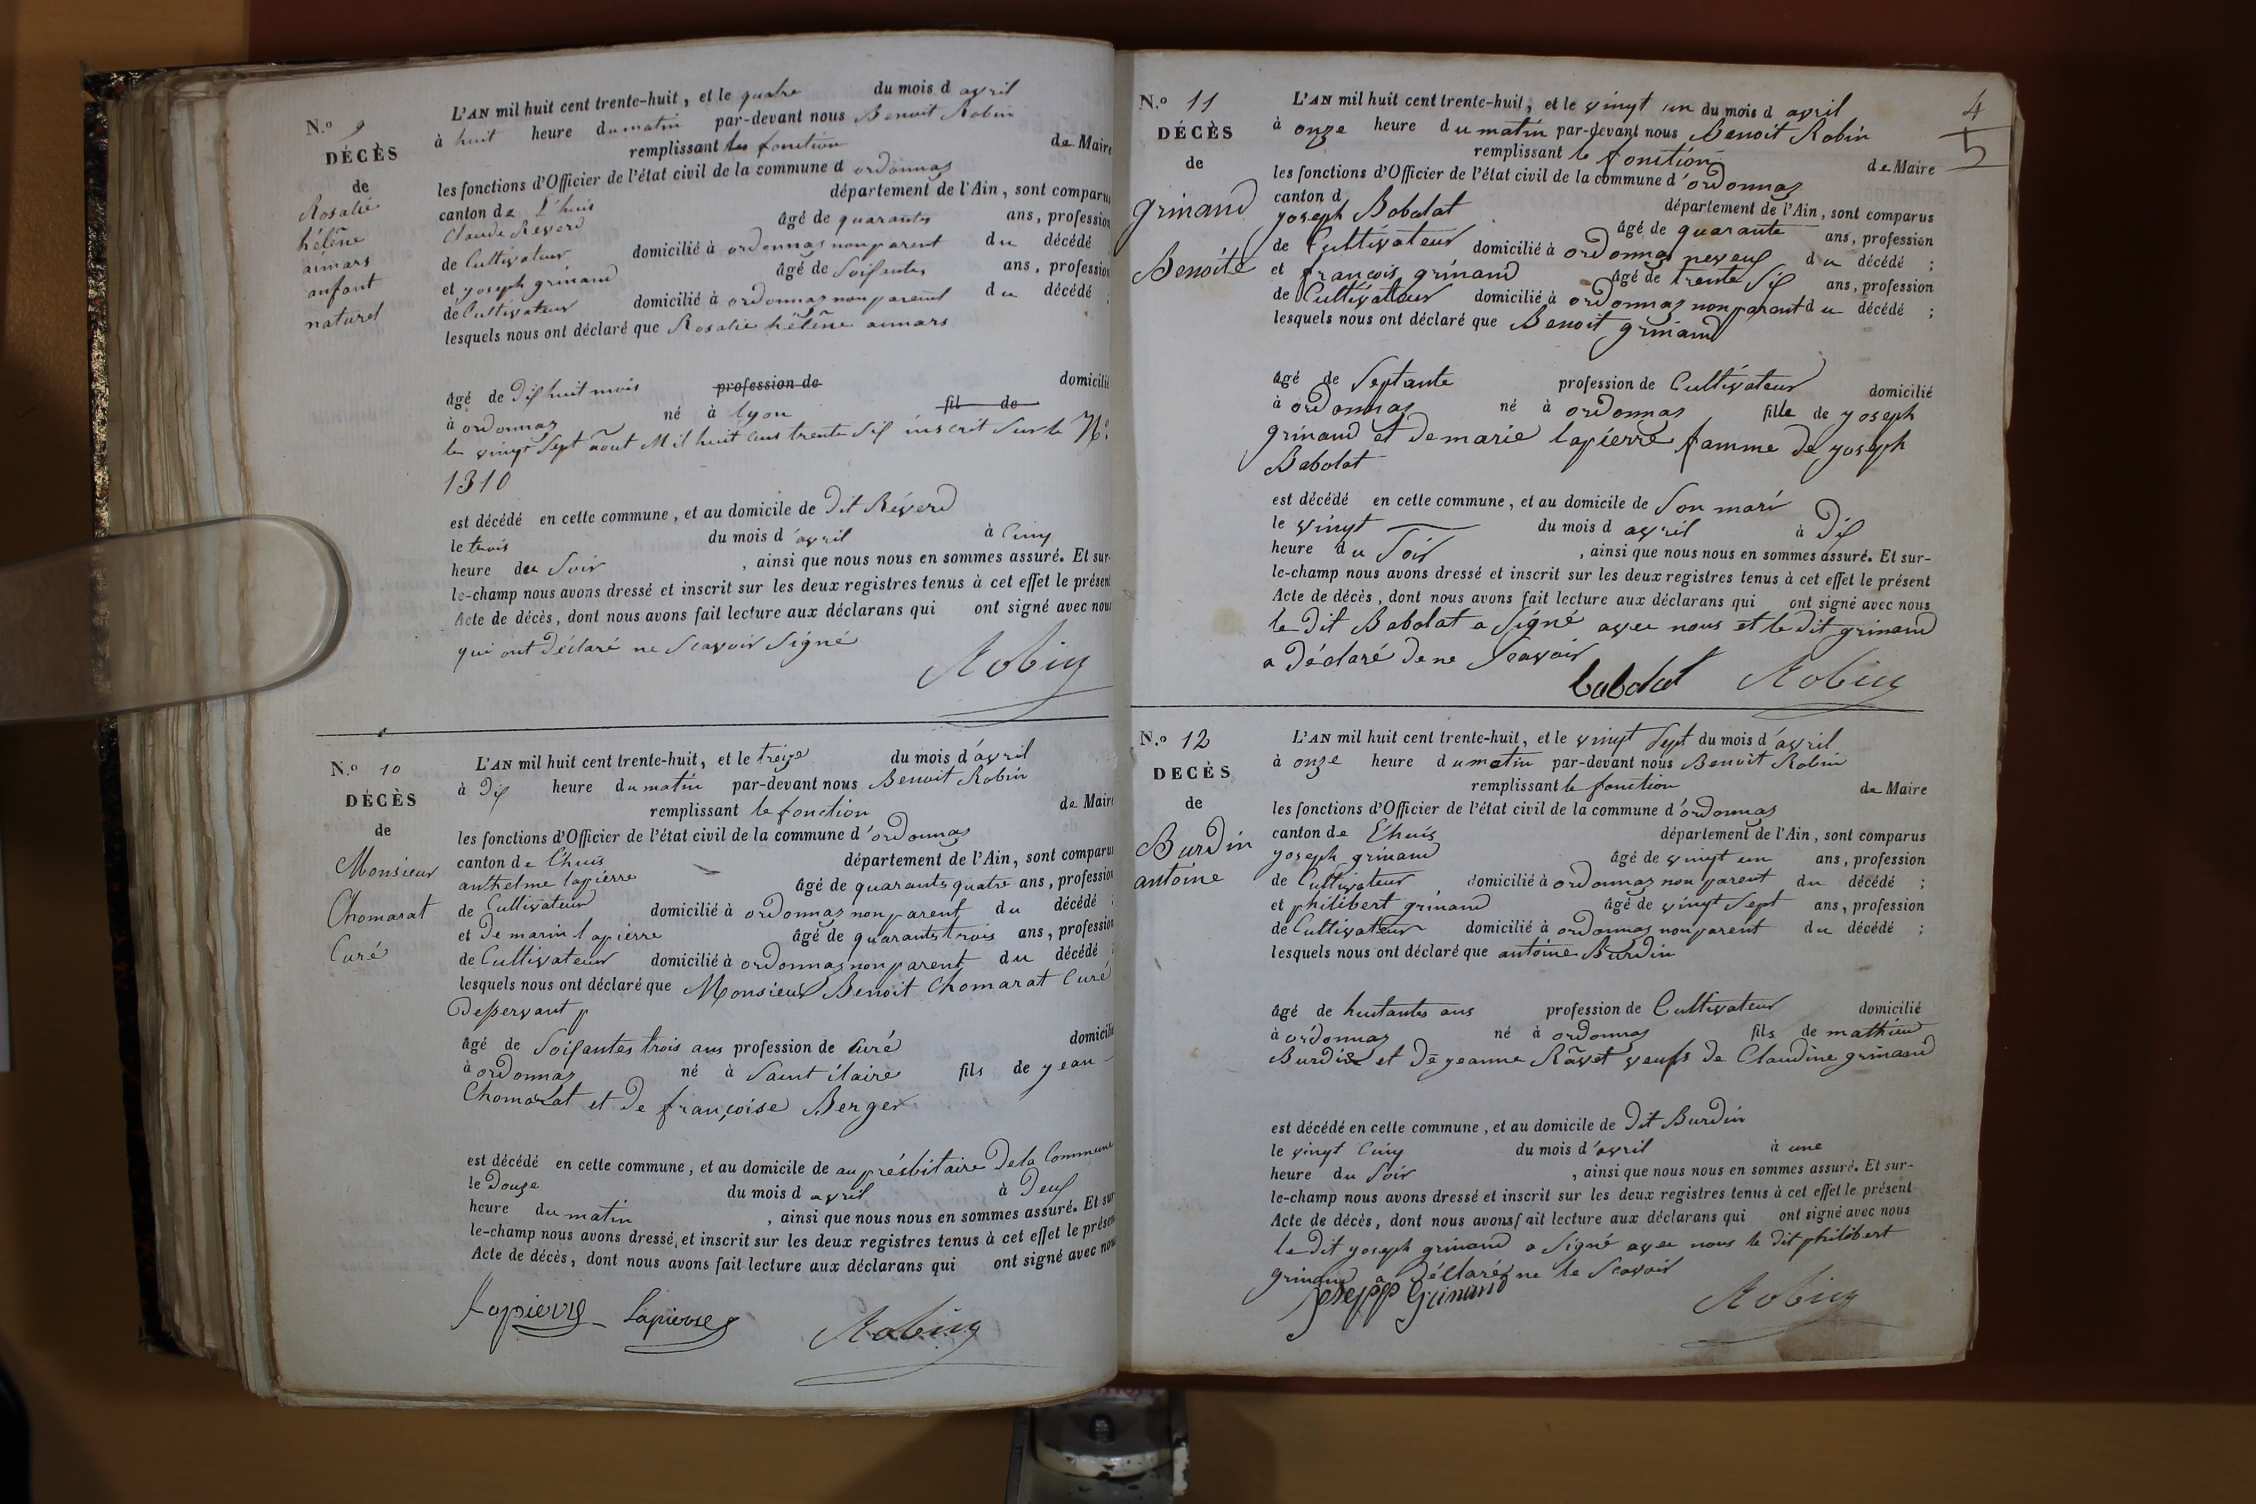 N.º 9
DÉCÈS
de
Rosalie
hélène
aimars
anfant
naturel
L'AN mil huit cent trente-huit, et le quatre du mois d avril
à huit heure du matin par-devant nous Benoit Robin
remplissant les fonction de Maire
les fonctions d'Officier de l'état civil de la commune d ordonnas
canton de L'huis département de l'Ain, sont comparus
Claude Reverd âgé de quarantes ans, profession
de Cultivateur domicilié à ordonnas non parent du décédé
et yoseph grinand âgé de Soisantes ans, profession
de Cultivateur domicilié à ordonnas non parent du décédé ;
lesquels nous ont déclaré que Rosalie hélène aimars
âgé de Dis huit mois profession de domicilié
à ordonnas né à lyon fil de
le vingt Sept aout Mil huit cens trente Sis inscrit Sur le N.º
1310
est décédé en cette commune, et au domicile de Dit Réverd
le trois du mois d'avril à Cinq
heure du Soir , ainsi que nous nous en sommes assuré. Et sur-
le-champ nous avons dressé et inscrit sur les deux registres tenus à cet effet le présent
Acte de décès, dont nous avons fait lecture aux déclarans qui ont signé avec nous
qui ont Déclaré ne Scavoir Signé
Robin
N.º 10
DÉCÈS
de
Monsieur
Chomarat
Curé
L'AN mil huit cent trente-huit, et le treize du mois d'avril
à Dis heure du matin par-devant nous Benoit Robin
remplissant le fonction de Maire
les fonctions d'Officier de l'état civil de la commune d'ordonnas
canton de L'huis département de l'Ain, sont comparus
anthelme lapierre âgé de quarantes quatre ans, profession
de Cultivateur domicilié à ordonnas non parent du décédé ;
et De marin lapierre âgé de quarantes trois ans, profession
de Cultivateur domicilié à ordonnas non parent du décédé ;
lesquels nous ont déclaré que Monsieur Benoit Chomarat Curé
Desservant
âgé de Soisantes trois ans profession de Curé domicilié
à ordonnas né à Saint ilaire fils de yean
Chomarat et De françoise Berger
est décédé en cette commune, et au domicile de au présbitaire De la Commune
le Douze du mois d avril à Deus
heure du matin , ainsi que nous nous en sommes assuré. Et sur
le-champ nous avons dressé et inscrit sur les deux registres tenus à cet effet le présent
Acte de décès, dont nous avons fait lecture aux déclarans qui ont signé avec nous
Lapierre Lapierre Robin
4
5
N.º 11
DÉCÈS
de
grinand
Benoite
L'AN mil huit cent trente-huit, et le vingt un du mois d avril
à onze heure du matin par-devant nous Benoit Robin
remplissant le fonction de Maire
les fonctions d'Officier de l'état civil de la commune d'ordonnas
canton d département de l'Ain, sont comparus
yoseph Bobolat âgé de quarante ans, profession
de Cultivateur domicilié à ordonnas neveus du décédé ;
et françois grinand âgé de trente Sis ans, profession
de Cultivateur domicilié à ordonnas non parant du décédé ;
lesquels nous ont déclaré que Benoit grinand
âgé de Septante profession de Cultivateur domicilié
à ordonnas né à ordonnas fille de yoseph
grinand et de marie lapierre famme De yoseph
Babolat
est décédé en cette commune, et au domicile de Son mari
le vingt du mois d avril à Dis
heure du Soir , ainsi que nous nous en sommes assuré. Et sur-
le-champ nous avons dressé et inscrit sur les deux registres tenus à cet effet le présent
Acte de décès, dont nous avons fait lecture aux déclarans qui ont signé avec nous
le Dit Babolat a Signé avec nous et le Dit grinand
a Déclaré De ne Scavoir
babolat Robin
N.º 12
DÉCÈS
de
Burdin
antoine
L'AN mil huit cent trente-huit, et le vingt Sept du mois d'avril
à onze heure du matin par-devant nous Benoit Robin
remplissant le fonction de Maire
les fonctions d'Officier de l'état civil de la commune d'ordonnas
canton de L'huis département de l'Ain, sont comparus
yoseph grinand âgé de vingt un ans, profession
de Cultivateur domicilié à ordonnas non parent du décédé ;
et philibert grinand âgé de vingt Sept ans, profession
de Cultivateur domicilié à ordonnas non parent du décédé ;
lesquels nous ont déclaré que antoine Burdin
âgé de huitantes ans profession de Cultivateur domicilié
à ordonnas né à ordonnas fils de mathieu
Burdin et De yeanne Ravet veufs De Claudine grinand
est décédé en cette commune, et au domicile de Dit Burdin
le vingt Cinq du mois d'avril à une
heure du Soir , ainsi que nous nous en sommes assuré. Et sur-
le-champ nous avons dressé et inscrit sur les deux registres tenus à cet effet le présent
Acte de décès, dont nous avons fait lecture aux déclarans qui ont signé avec nous
le Dit yoseph grinand a Signé avec nous le Dit philibert
grinand a Déclaré ne le Scavoir
Joseph Grinand Robin